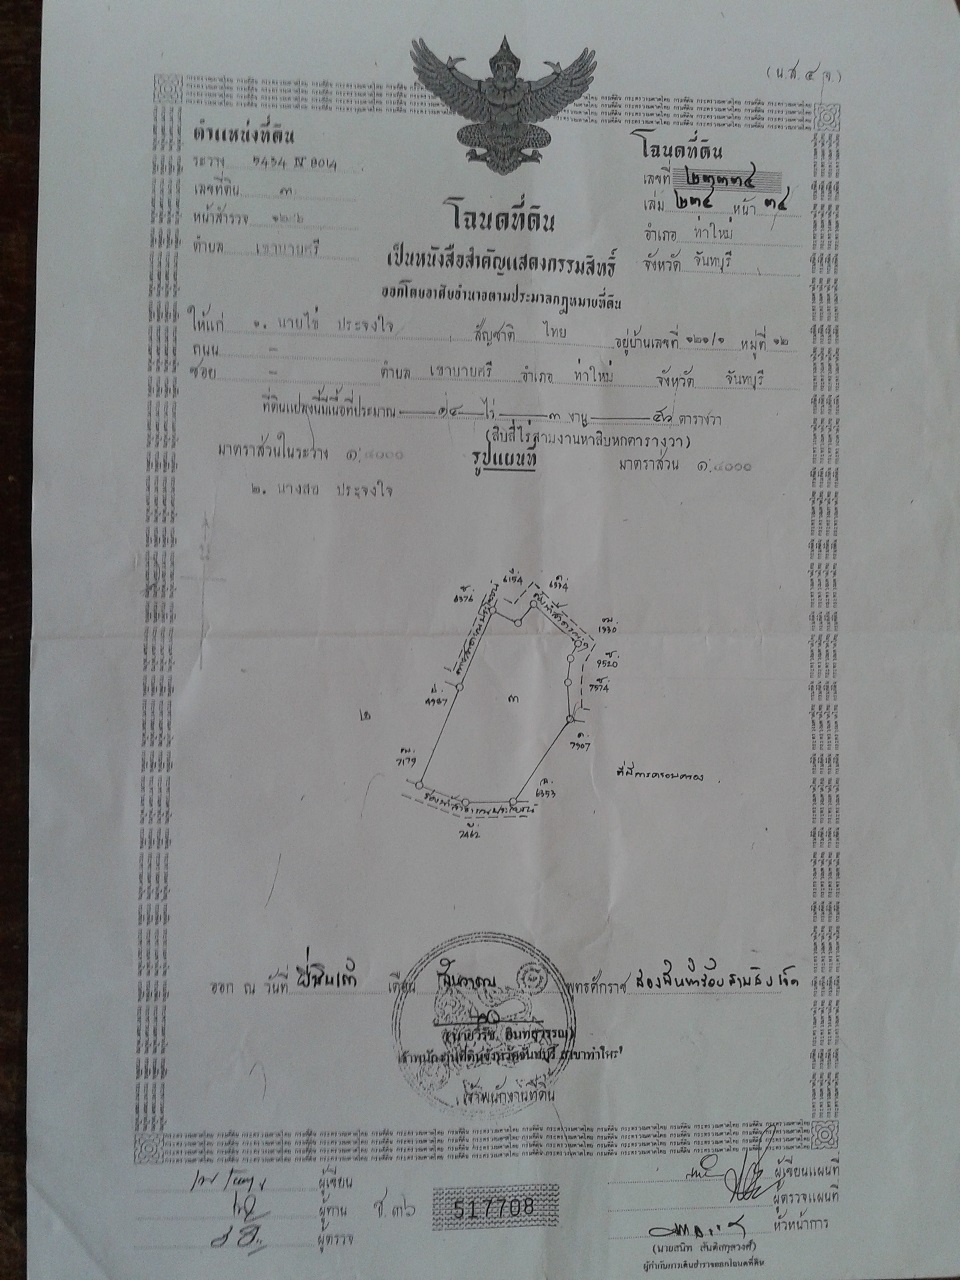 (น.ส. ๔ จ.)
ตำแหน่งที่ดิน
ระวาง 5434 IV 8014
เลขที่ดิน ๓
หน้าสำรวจ ๑๒๖
ตำบล เขาบายศรี
โฉนดที่ดิน
เลขที่ ๒๓๓๓๔
เล่ม ๒๓๔ หน้า ๓๔
อำเภอ ท่าใหม่
จังหวัด จันทบุรี
โฉนดที่ดิน
เป็นหนังสือสำคัญแสดงกรรมสิทธิ์
ออกโดยอาศัยอำนาจตามประมวลกฎหมายที่ดิน
ให้แก่ ๑. นายไข่ ประจงใจ สัญชาติ ไทย อยู่บ้านเลขที่ ๑๒๑/๑ หมู่ที่ ๑๒
ถนน -
ซอย - ตำบล เขาบายศรี อำเภอ ท่าใหม่ จังหวัด จันทบุรี
ที่ดินแปลงนี้มีเนื้อที่ประมาณ ๑๔ ไร่ ๓ งาน ๕๖ ตารางวา
(สิบสี่ไร่สามงานห้าสิบหกตารางวา)
มาตราส่วนในระวาง ๑:๔๐๐๐ รูปแผนที่ มาตราส่วน ๑:๔๐๐๐
๒. นางสอ ประจงใจ
6154
6376
1930
9520
7574
๓
๒
7179
7907
ที่มีการครอบครอง
6353
ออก ณ วันที่ ยี่สิบเก้า เดือน ธันวาคม พุทธศักราช สองพันห้าร้อยสามสิบเจ็ด
(นายวิรัช อินทสุวรรณ)
เจ้าพนักงานที่ดินจังหวัดจันทบุรี สาขาท่าใหม่
เจ้าพนักงานที่ดิน
ผู้เขียน
ผู้ทาน
ผู้ตรวจ
ช. ๓๖
517708
ผู้เขียนแผนที่
ผู้ตรวจแผนที่
หัวหน้าการ
ผู้กำกับการเดินสำรวจออกโฉนดที่ดิน